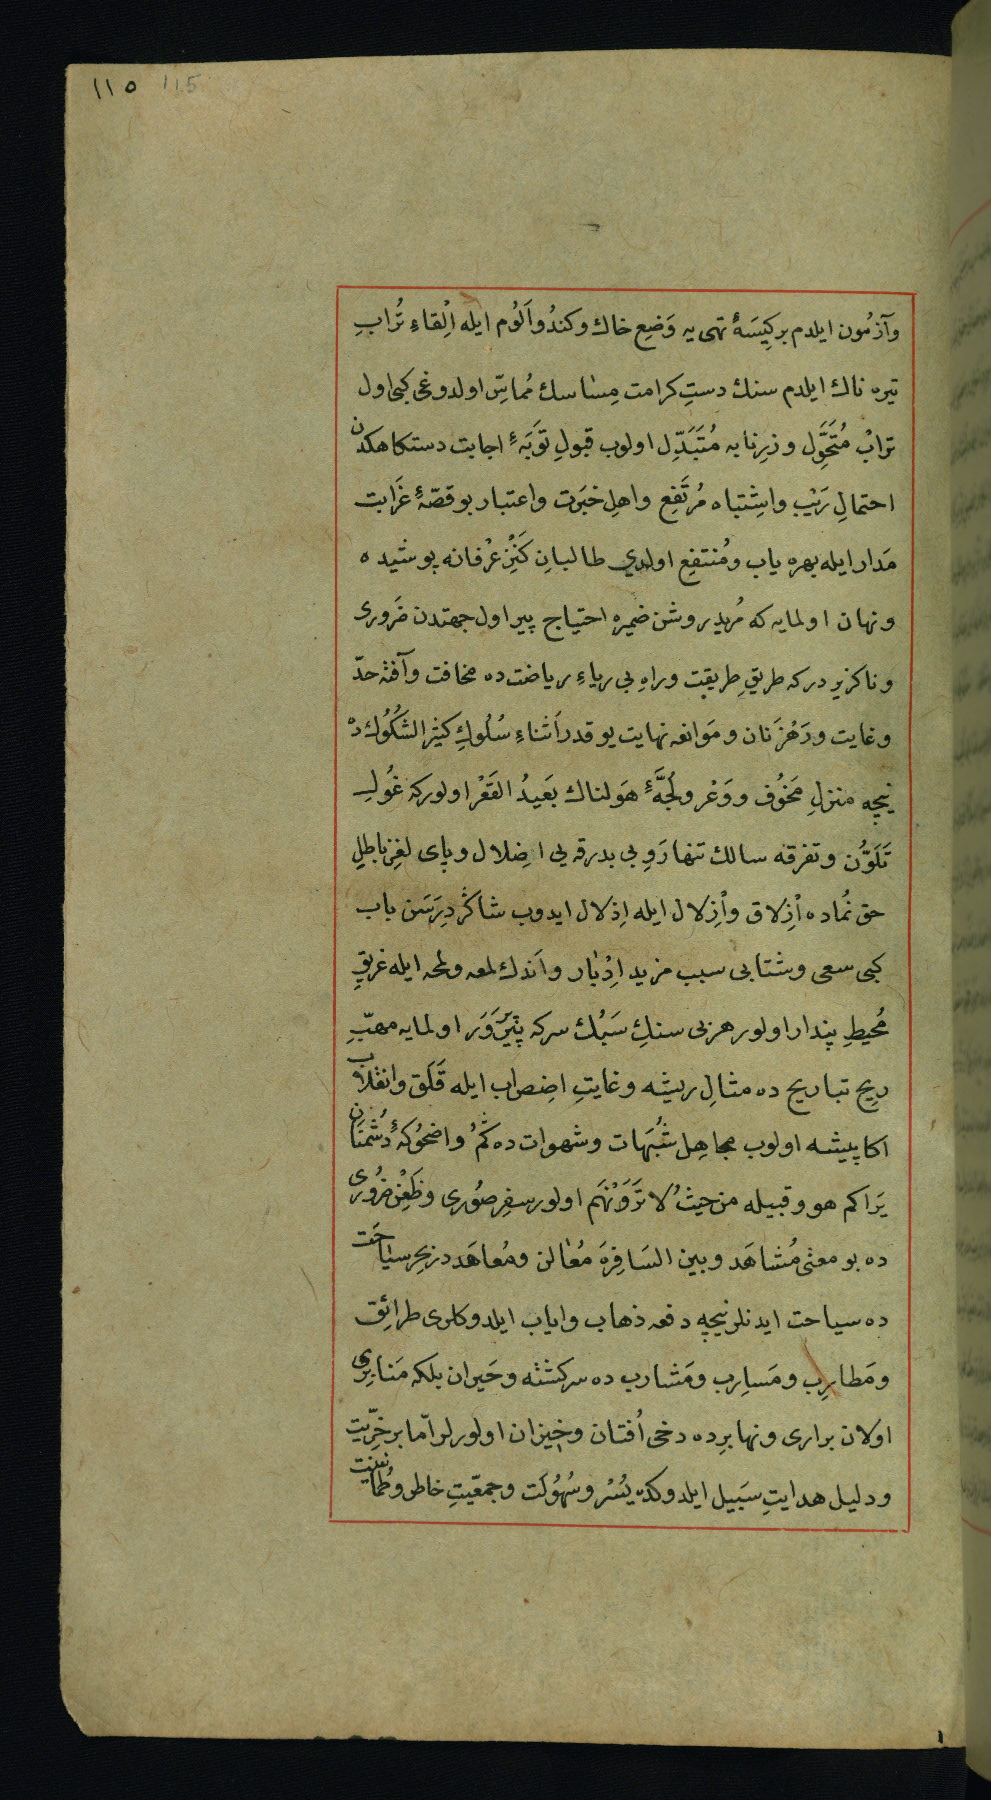 ١١٥ 115
وآزمُون ايلدم بر كِيسَهٔ تهى يه وَضِع خاك وكندُو اَلوُم ايله اِلْقاءِ تُرابِ
تيره ناك ايلدم سنك دستِ كرامت مِساسك مُماسّ اولدوغى كبى اول
ترابْ مُتَحَوِّل وزرِنابه مُتَبَدِّل اولوب قبولِ تَوبَهٔ اجابت دستكاهكدن
احتمالِ رَيْب واشِتباه مُرتَفِع واهلِ خبَرت واعتبار بو قصّهٔ غَرابت
مَدار ايله بهره ياب ومُنتفِع اولدي طالبانِ كَنْزِ عرْفانه پوشيده
ونهان اولمايه كه مُريدِ روشن ضميره احتياج پير اول جهتدن ضَرورى
وناكزير دركه طريقِ طريقت وراهِ بى رياءِ رياضت ده مخافت وآفته حدّ
وغايت ورَهْزنان ومَوانعه نهايت يوقدر اَثناءِ سُلوُكِ كثيرُ الشُكُوُك ده
نيچه منزلِ مَخوُف ووَعْر ولُجَّهٔ هَولناك بَعيدُ القَعْر اولوركه غُولِ
تَلَوُّن وتفرقه سالك تنهارَوِ بى بدرقه يى اضِلال وپاى لغزِ باطلِ
حق نُماده اَزِلاق واِزِلال ايله اِذلال ايدوب شاكردِ رَسَن باب
كبى سعى وشتابى سبب مزيد اِدْبار واَندك لمعه ولمحه ايله غريقِ
مُحيطِ پندار اولور هربى سنكِ سَبُك سركه پيْرپَروَر اولمايه مهبِّ
ريح تباريح ده مثالِ ريشه وغايتِ اضِصراب ايله قَلَق وانقلاب
اكا پيشه اولوب مجاهِل شُبُهات وشهوات ده كُمْ واضحوُكهٔ دُشمَنان
يَراكم هو وقبيله من حيثُ لا تَرَوْنَهُم اولور سفرِ صُورى وظَعْنِ ضُرورى
ده بو معنى مُشاهَد وبين السَافِرَهٔ مُعَالن ومُعاهَد درنجِر سياحَت
ده سياحت ايدنلر نيچه دفعه ذهاب واياب ايلدوكلرى طرائِق
ومَطارِب ومَسارِب ومَشارب ده سركشته وحَيران بلكه مَنابِرى
اولان برارى ونهابرده دخى اُفتان وخيزان اولورلر اَمّا بر خرِّيت
ودليل هدايتِ سَبيل ايلدوكده يُسْر وسُهوُلَت وجمعيّتِ خاطر وطُمانينت